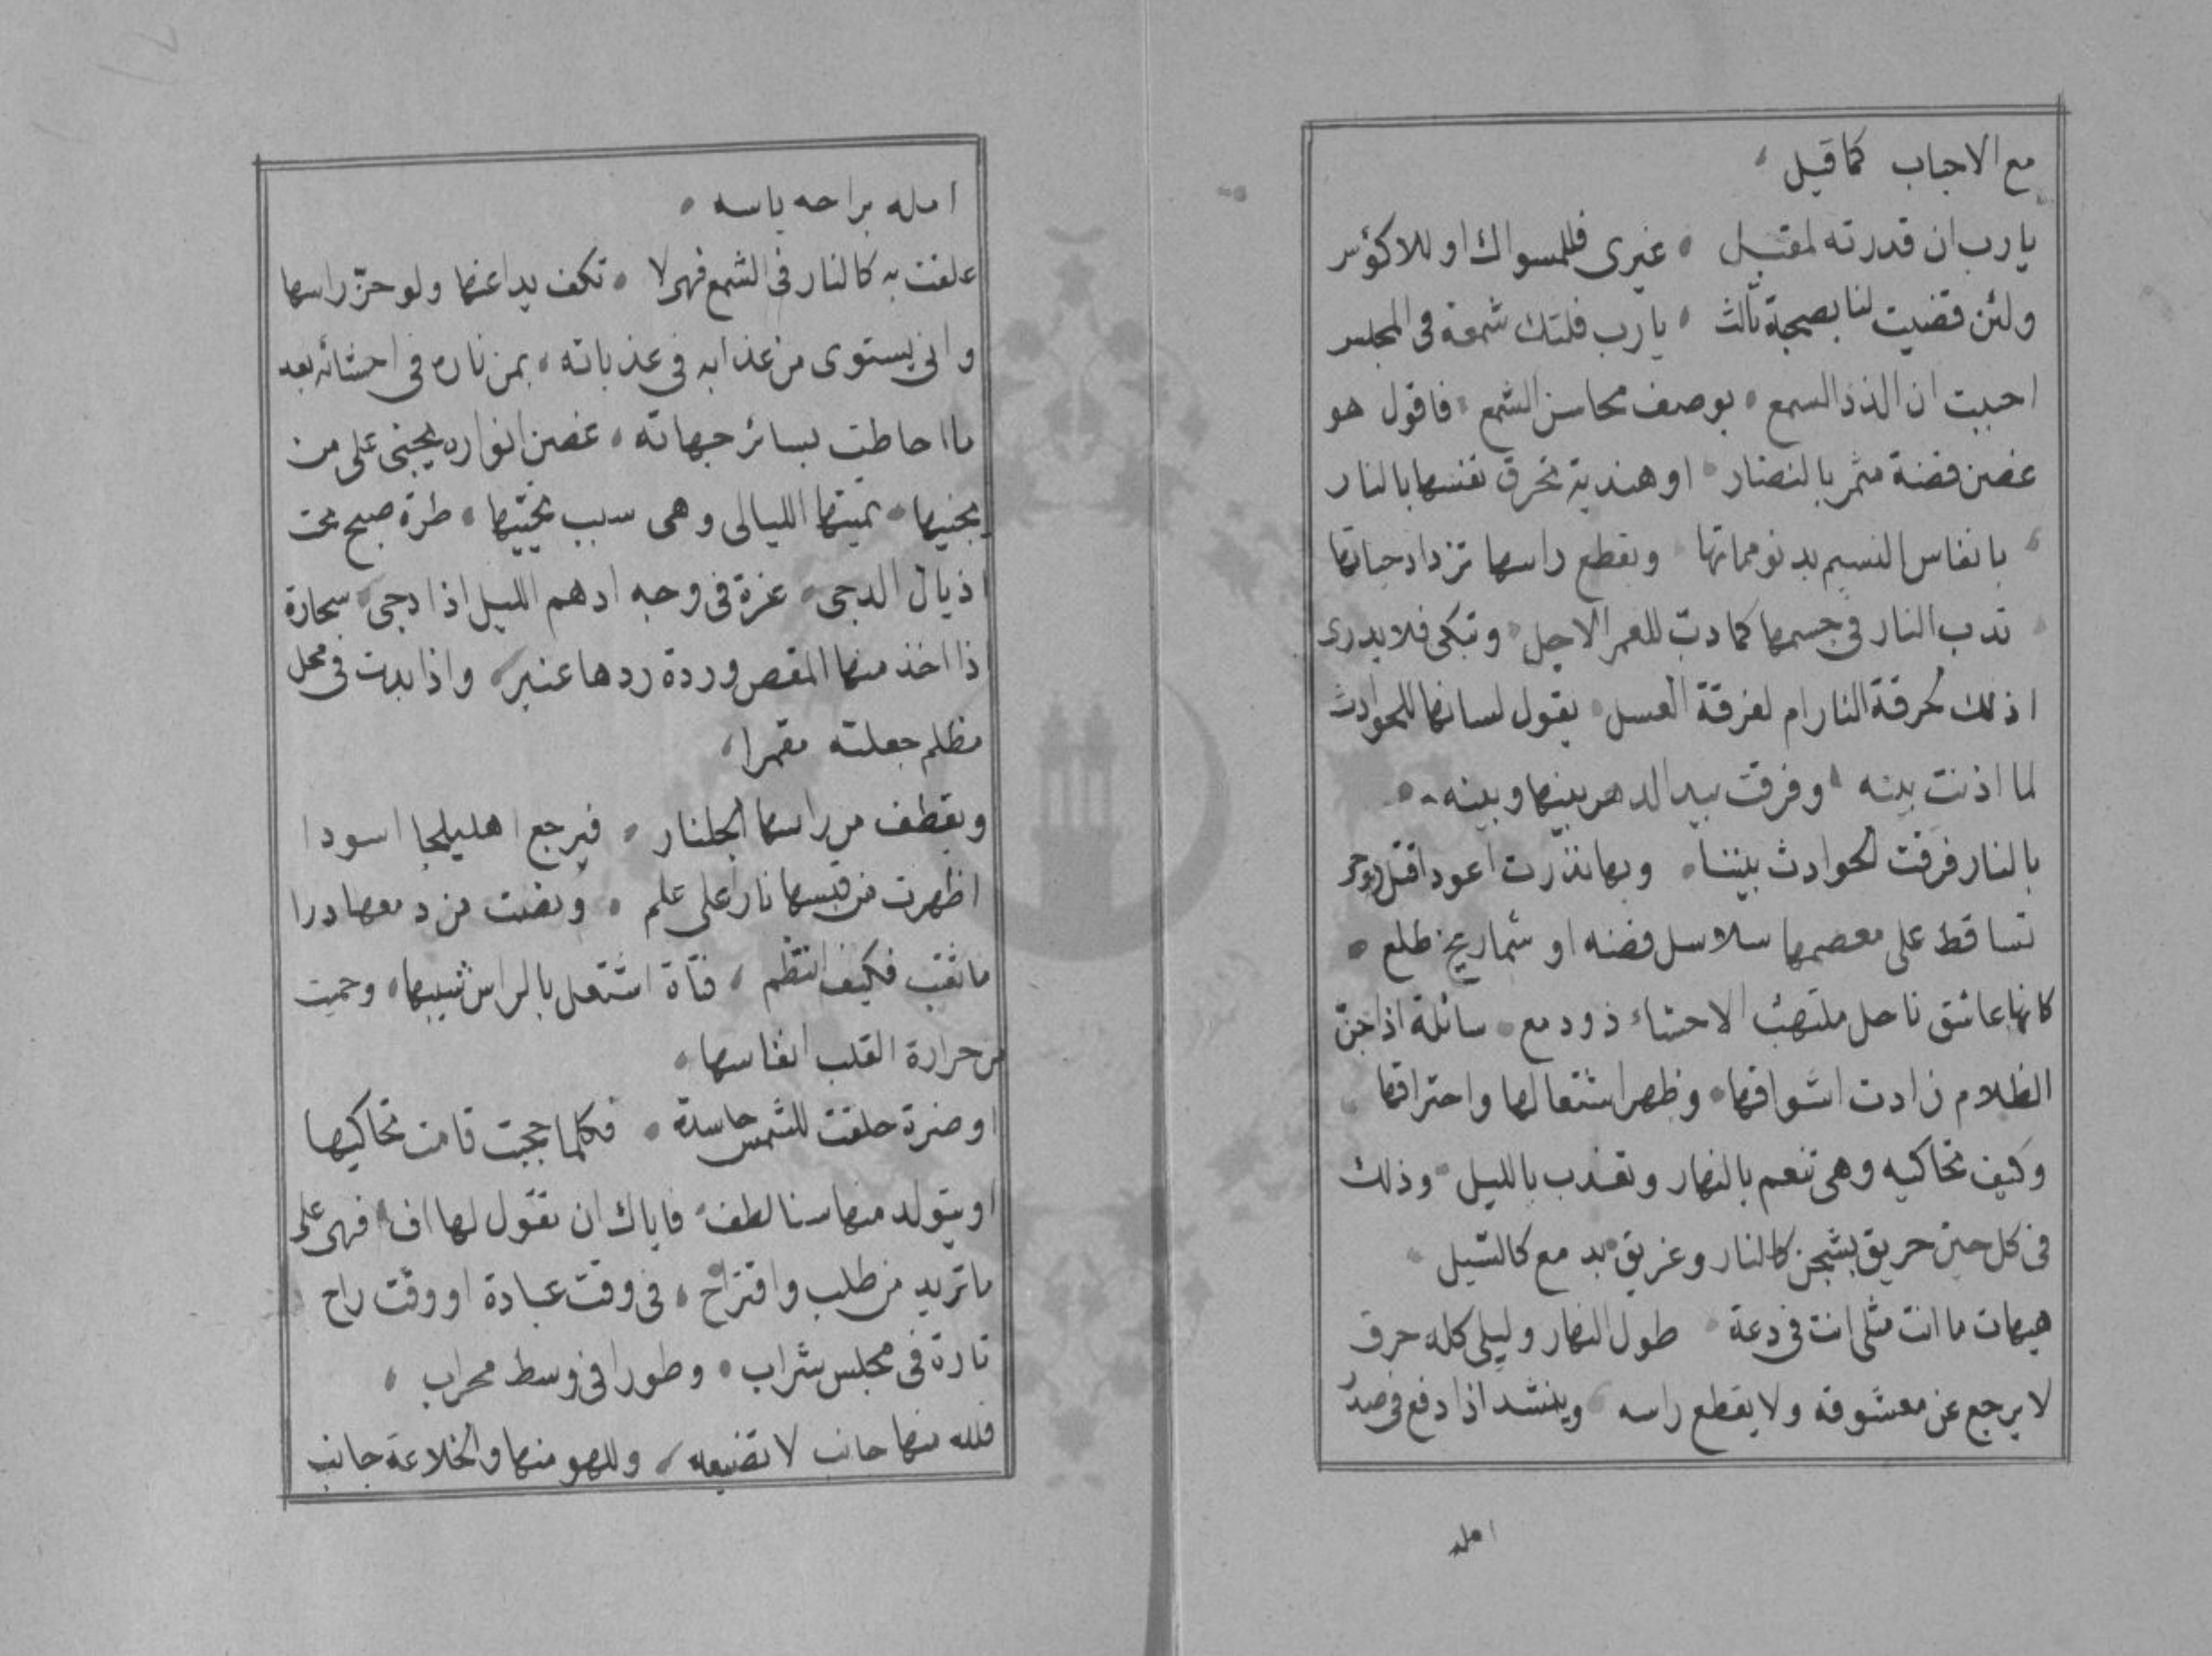 مع الاحباب كما قيل
يا رب ان قدرته لمقبل غيرى فللمسواك او للاكؤس
ولئن قضيت لنا بصحبة ثالث يا رب فلتك شمعة فى المجلس
احببت ان الذذ السمع بوصف محاسن الشمع فاقول هو
غصن فضة مثمر بالنضار او هندية تحرق نفسها بالنار
بانفاس النسيم يدنو مماتها وبقطع راسها تزداد حياتها
تدب النار فى جسمها كما دب للعمر الاجل وتبكى فلا يدرى
اذلك لحرقة النار ام لفرقة العسل يقول لسانها للحوادث
لما اذنت بينه وفرقت بيد الدهر بينها وبينه
بالنار فرقت الحوادث بيننا وبها نذرت اعود اقتل روحى
تساقط على معصمها سلاسل فضه او شماريخ طلع
كانها عاشق ناحل ملتهب الاحشاء ذو دمع سائلة اذا جن
الظلام زادت اشواقها وظهر اشتعالها واحتراقها
وكيف تحاكيه وهى تنعم بالنهار وتعذب بالليل وذلك
فى كل حين حريق بشجن كالنار وغريق بدمع كالسيل
هيهات ما انت مثلى انت فى دعة طول النهار وليلى كله حرق
لا يرجع عن معشوقه ولا يقطع راسه وينشد اذا دفع فى صدر
امله
امله براحه ياسه
علقت به كالنار فى الشمع فهى لا تكف يدا عنها ولو حز راسها
وانى يستوى من عذابه فى عذباته بمن ناره فى احشائه بعد
ما احاطت بسائر جهاته غصن انواره يجنى على من
يجنيها تميتها الليالى وهى سبب تحييها طرة صبح تحت
اذيال الدجى غرة فى وجه ادهم الليل اذا دجى سحارة
ذا اخذ منها المقص وردة ردها عنبر واذا بدت فى محل
مظلم جعلته مقمرا
ويقطف من راسها الجلنار فيرجع اهليلجا اسودا
اظهرت من قبسها نار على علم ونضت من دمعها درا
ما ثقب فكيف انتظم فتاة اشتعل بالراس شيبها وحميت
من حرارة القلب انفاسها
او ضرة خلقت للشمس حاسدة فكلما حجبت قامت تحاكيها
او يتولد منها سنا لطف فاياك ان تقول لها اف فهى على
ما تريد من طلب واقتراح فى وقت عبادة او وقت راح
تارة فى مجلس شراب وطورا فى وسط محراب
فلله منها جانب لا تضيعه وللهو منها والخلاعة جانب